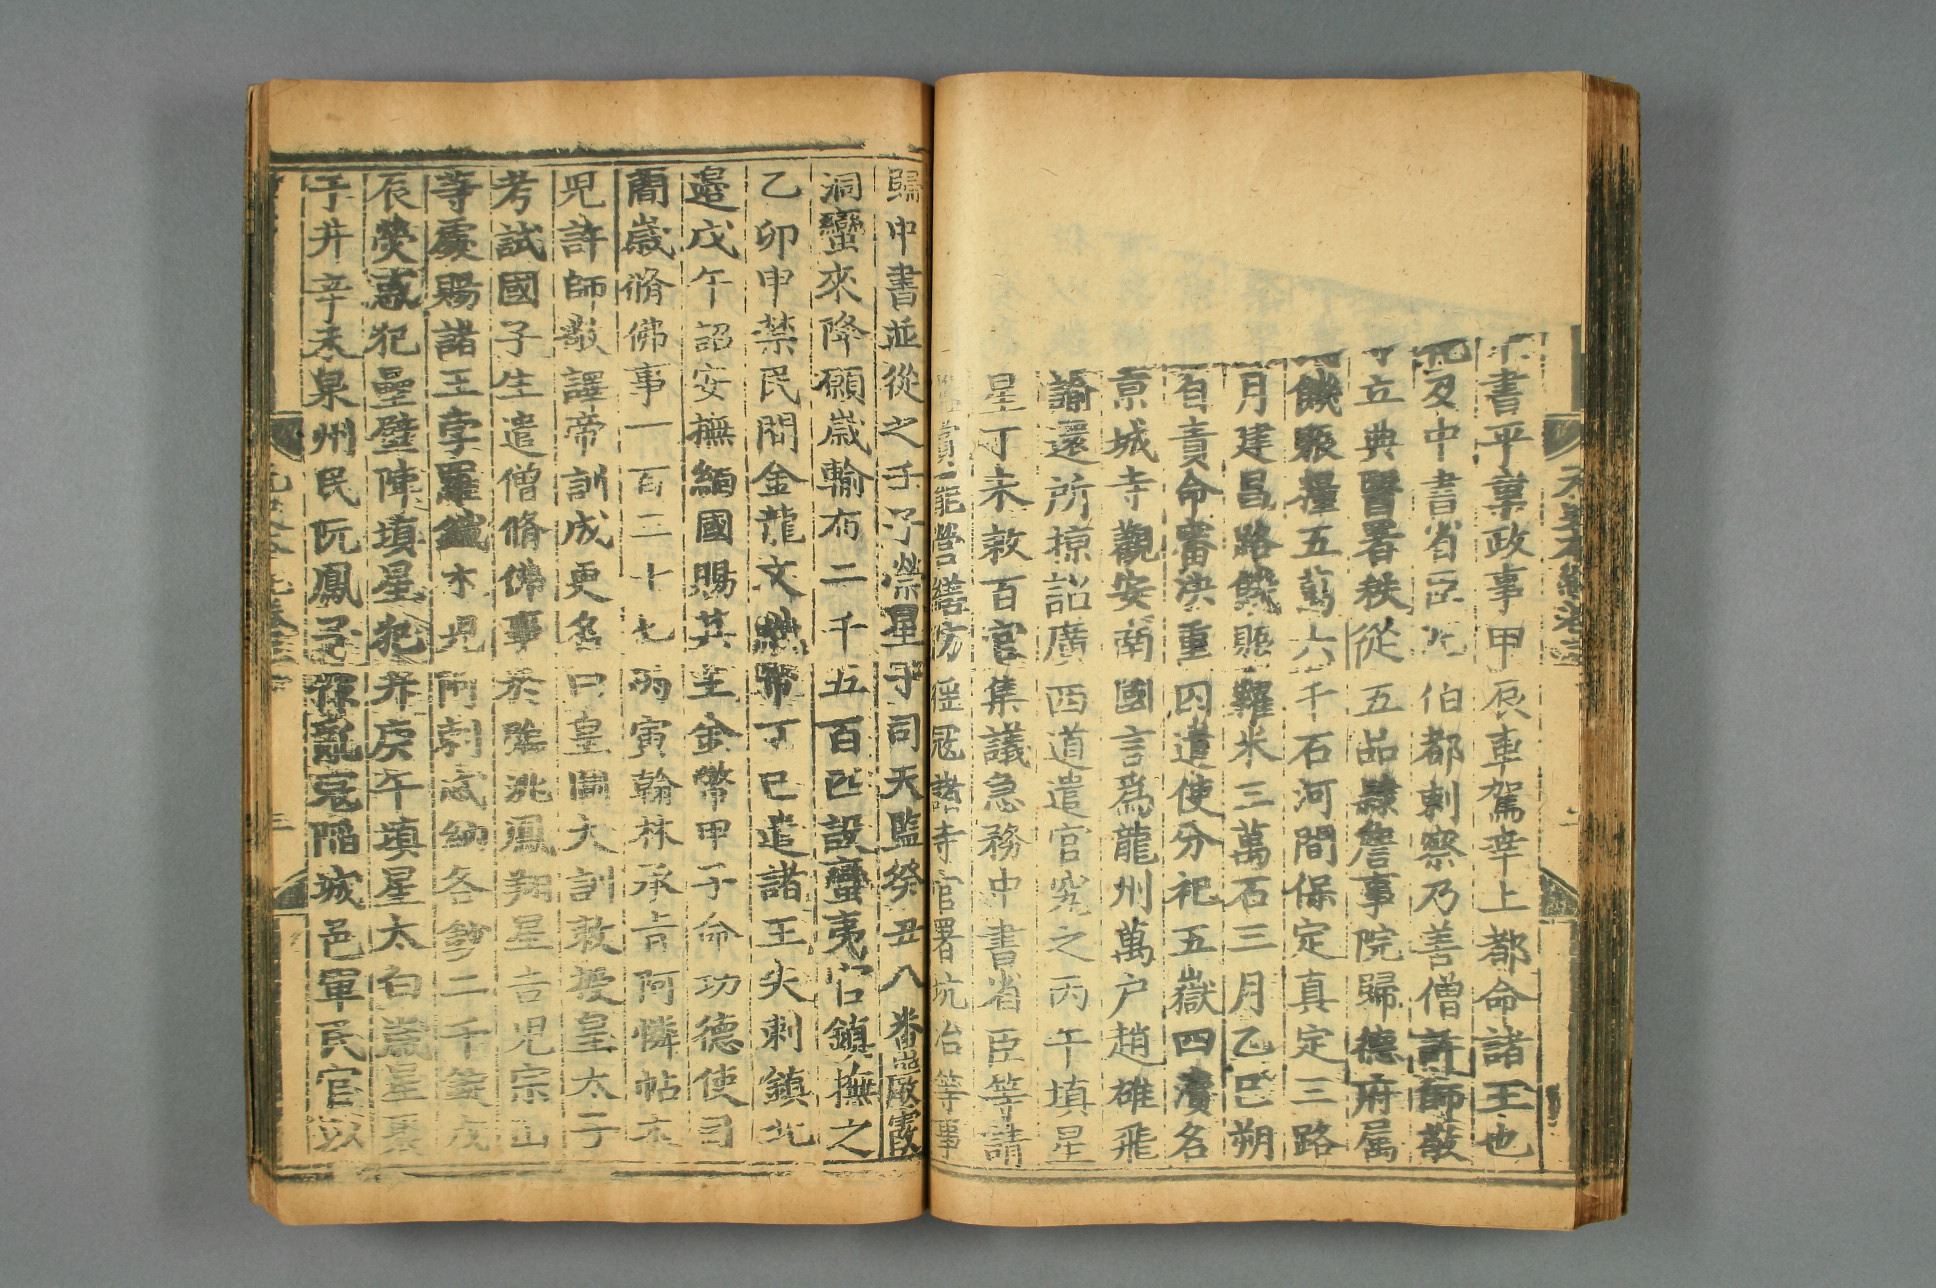 書平章政事甲辰車駕幸上都命諸王也
及中書省臣兀伯都剌察乃善僧許師敬
立典醫署秩從五品隷詹事院歸德府属
饑賑糧五萬六千石河間保定真定三路
月建昌路饑賑糶米三萬石三月乙巳朔
自責命審决重囚遣使分祀五嶽四瀆名
京城寺觀安南國言爲龍州萬户趙雄飛
諭還所掠詔廣西道遣官究之丙午填星
星丁未敕百官集議急務中書省臣等請
賞能營繕防徭寇諸寺官署坑冶等事
歸中書並從之壬子了禜星于司天監癸丑八番巖霞
洞蠻來降願歲輸布二千五百匹設蠻夷官鎮撫之
乙卯申禁民間金龍文織幣丁巳遣諸王失剌鎮北
邊戊午詔安撫緬國賜其主金幣甲子命功德使司
簡歲脩佛事一百二十七丙寅翰林承旨阿憐帖木
児許師敬譯帝訓成更名曰皇圖大訓敕授皇太子
考試國子生遣僧脩佛事於臨洮鳳翔星吉児宗山
等處賜諸王孛羅鐵木児阿剌忒納各鈔二千錠戊
辰熒惑犯壘壁陣填星犯井庚午填星太白歲星聚
于井辛未泉州民阮鳳子作亂寇陷城邑軍民官以